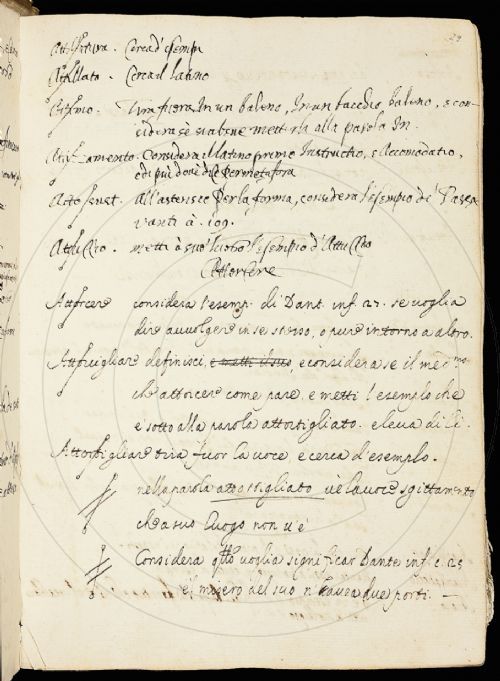 29
Cerca d'esempi
Cerca il latino
Attimo. Tira fuora In un baleno, In un baleno, e con-
sidera se sia bene metterla alla parola In.
Considera il latino primo Instructio, e Accomodatio,
e di più dove dice per metafora
All'asterisco per la forma, considera l'esempio de'
vanti à. 109.
metti à suo luogo l'esempio d'
Attorcere
Attorcere considera l'esemp. di Dant. inf. 27. se voglia
dire avvolgere in se stesso, o pure intorno a altro.
Attorcigliare definisci, e considera se il med.mo
che attorcere come pare e metti l'esemplo che
e sotto alla parola attortigliato. e leva di lì.
Attortigliare tira fuor la voce, e cerca d'esemplo.
nella parola attortigliato v'è la voce sgittamento
che a suo luogo non v'è
Considera voglia significar Dante inf. c. 25
e'l misero del suo n'havea due porti. —